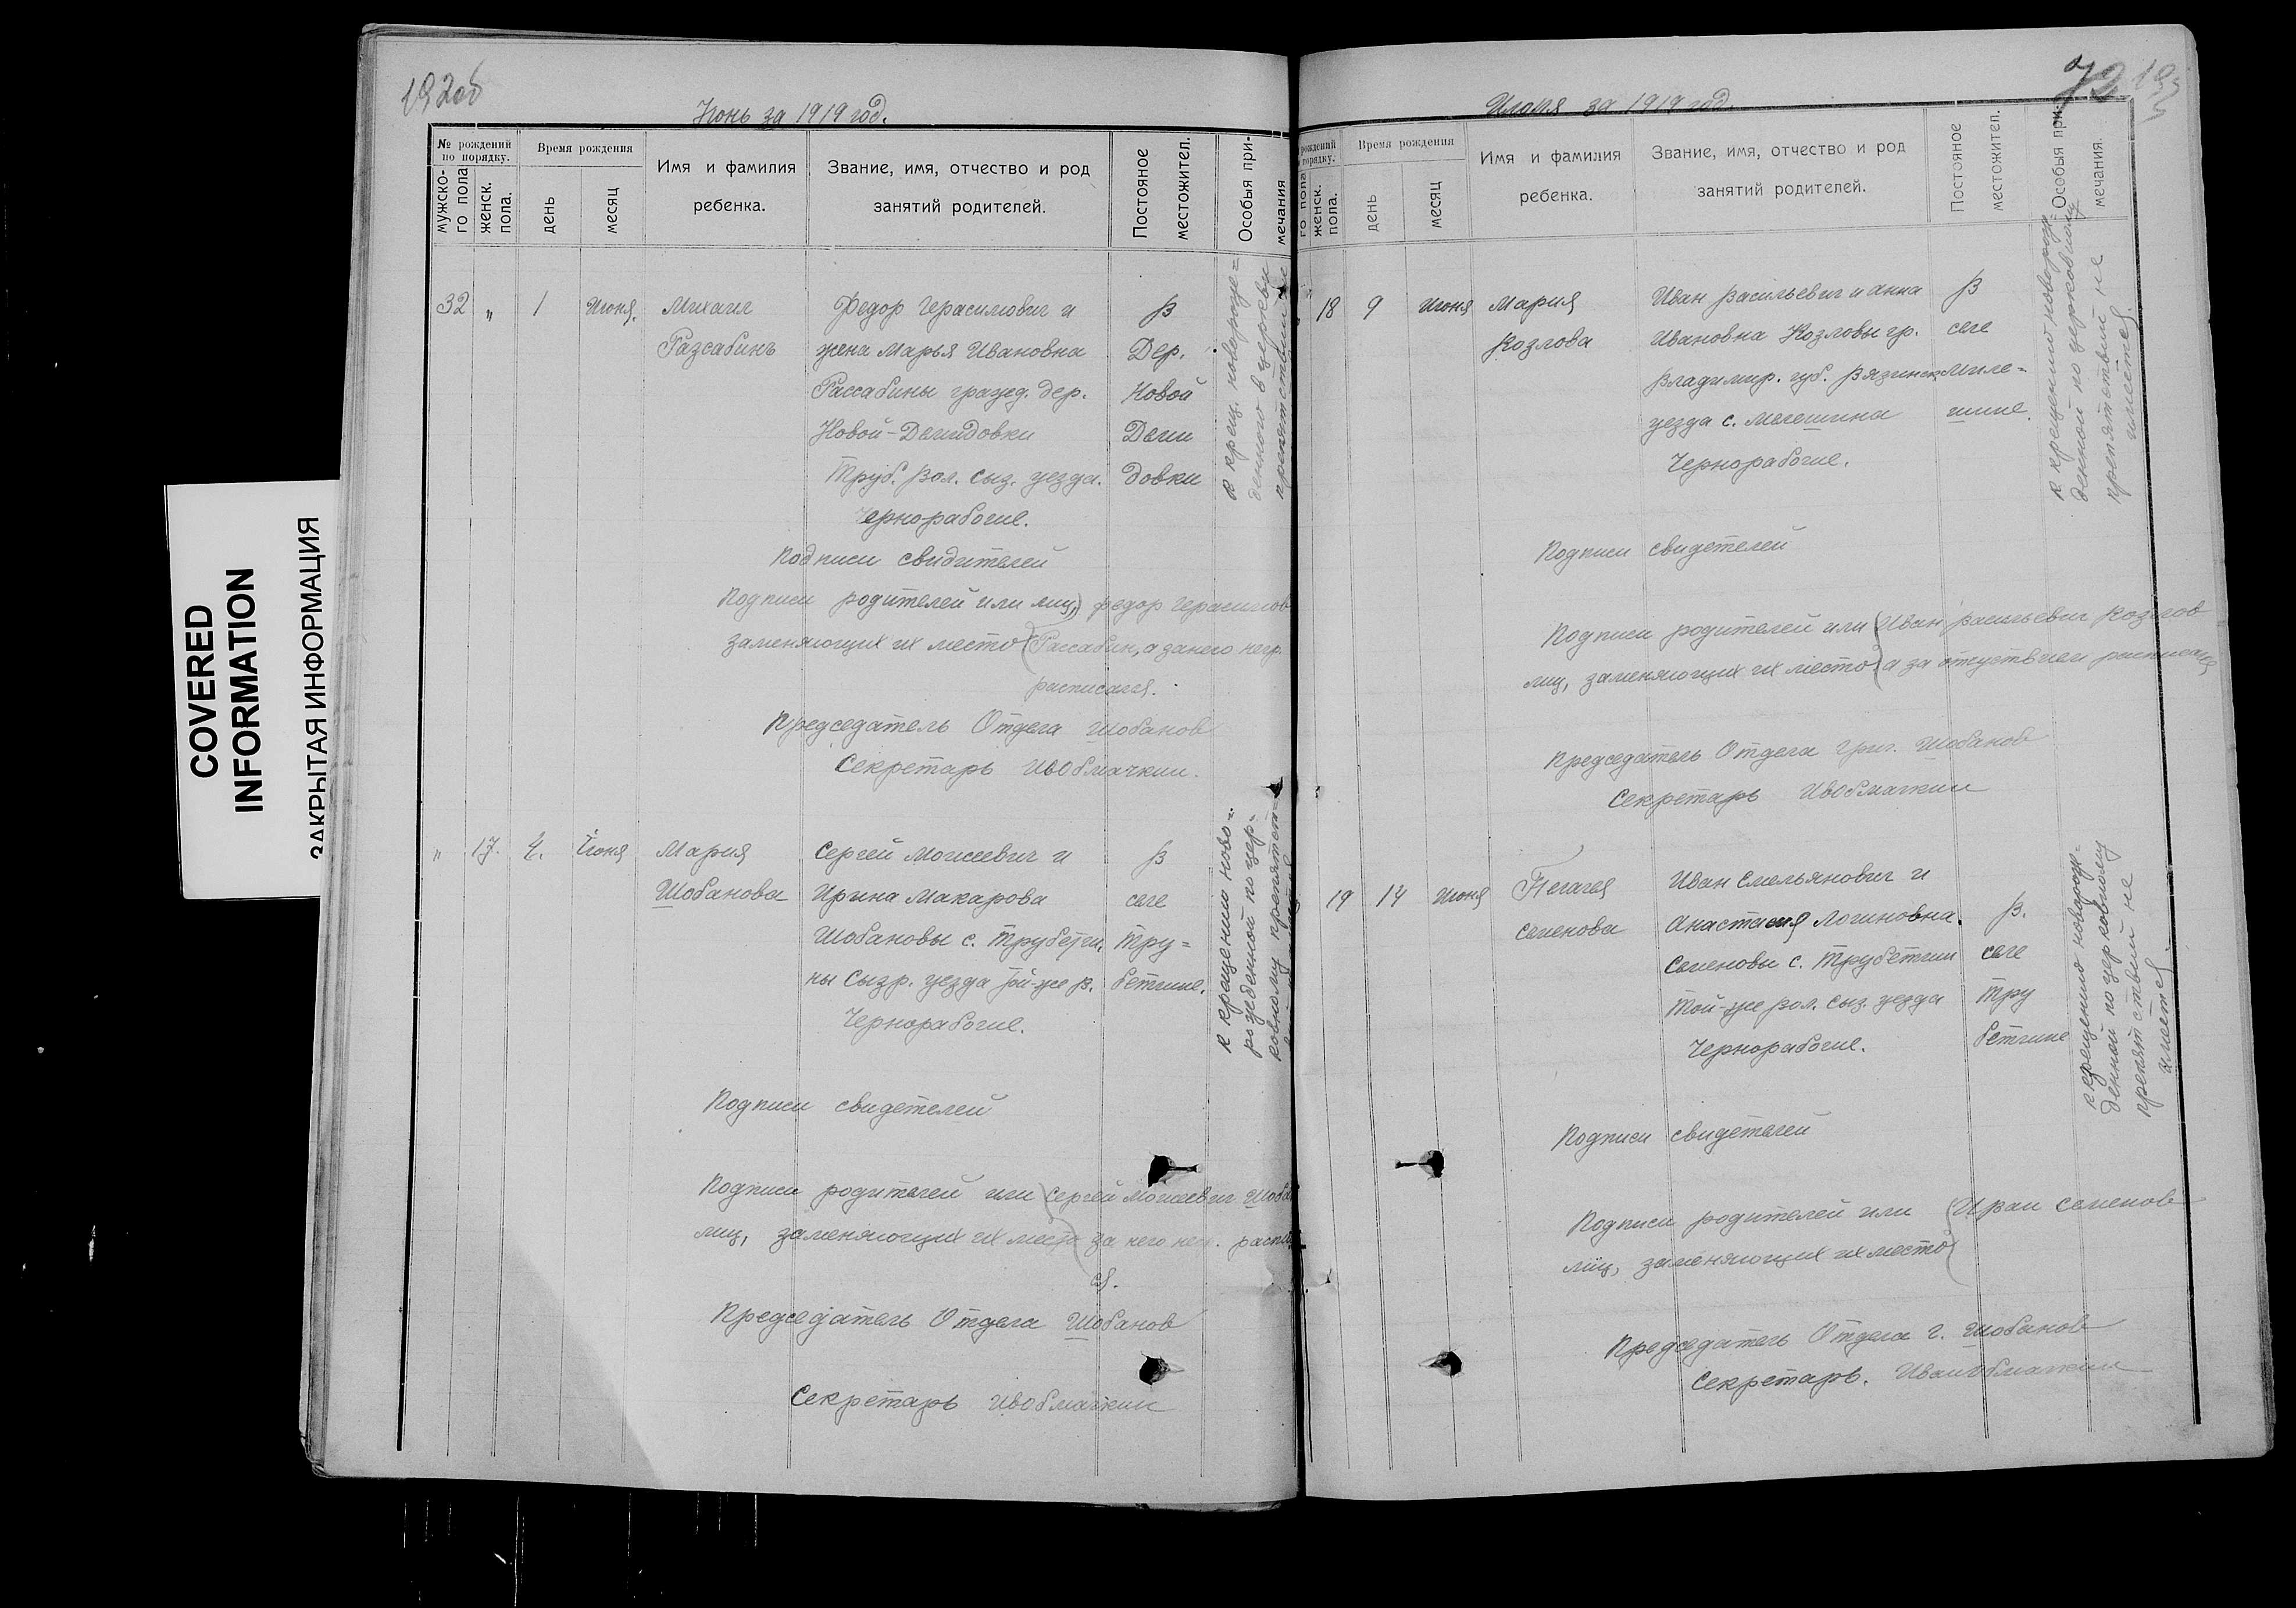 COVERED
INFORMATION
ЗАКРЫТАЯ ИНФОРМАЦИЯ
192об
Июнь за 1919 год.
№ рождений по порядку.
мужско-го пола
женск. пола.
Время рождения
день
месяц
Имя и фамилия ребенка.
Звание, имя, отчество и род занятий родителей.
Постояное местожител.
Особыя при-мечания
32 " 1 Июня. Михаил Федор Герасимович и В
Разсабинъ жена Марья Ивановна Дер.
Рассабины гражд. дер. Новой
Новой-Демидовки Деми
Труб. вол. сыз. уезда. довки
Чернорабочие.
К крещ. новорожде=
денного в церкви
препятствий не
Подписи свидителей
Подписи родителей или лиц, Федор Герасимов
заменяющих их место (Рассабин, а занего негр.
расписался.
Председатель Отдела Шобанов
Секретарь ИвОблачкин.
" 17. 4. Июня Мария Сергей Моисеевич и В
Шобанова Ирина Макарова селе
Шобановы с. Трубетчи, Тру=
ны Сызр. уезда Той-же в. бетчине.
Чернорабочие.
К крещению ново=
рожденной по цер-
ковному препятст-
Подписи свидетелей
Подписи родителей или (Сергей Моисеевич Шоба
лиц, заменяющих их место за него нег. распис
ся.
Председатель Отдела Шобанов
Секретарь ИвОблачкин
72 193
Июня за 1919 год.
рождений порядку.
го пола
женск. пола.
Время рождения
день
месяц
Имя и фамилия ребенка.
Звание, имя, отчество и род занятий родителей.
Постояное местожител.
Особыя при-мечания.
18 9 Июня Мария Иван Васильевич и Анна В
Козлова Ивановна Козловы гр. селе
Владимир. губ. Вязник. Миле-
уезда с. Мелешина шине.
Чернорабочие.
К крещению новорож-
денной по церковному
препятствий не
имеется.
Подписи свидетелей
Подписи родителей или (Иван Васильевич Козлов
лиц, заменяющих их место (а за отсуствием расписался
Председатель Отдела Григ. Шобанов
Секретарь ИвОблачкин
19 14 Июня Пелагея Иван Емельянович и
Семенова Анастасия Логиновна. В.
Семеновы с. Трубетчин селе
Той-же вол. сыз. уезда Тру
Чернорабочие. бетчине
К крещению новорож-
денной по церковному
препятствий не
имеется.
Подписи свидетелей
Подписи родителей или (Иван Семенов
лиц, заменяющих их место
Председатель Отдела Г. Шобанов
Секретарь. ИванОблачкин